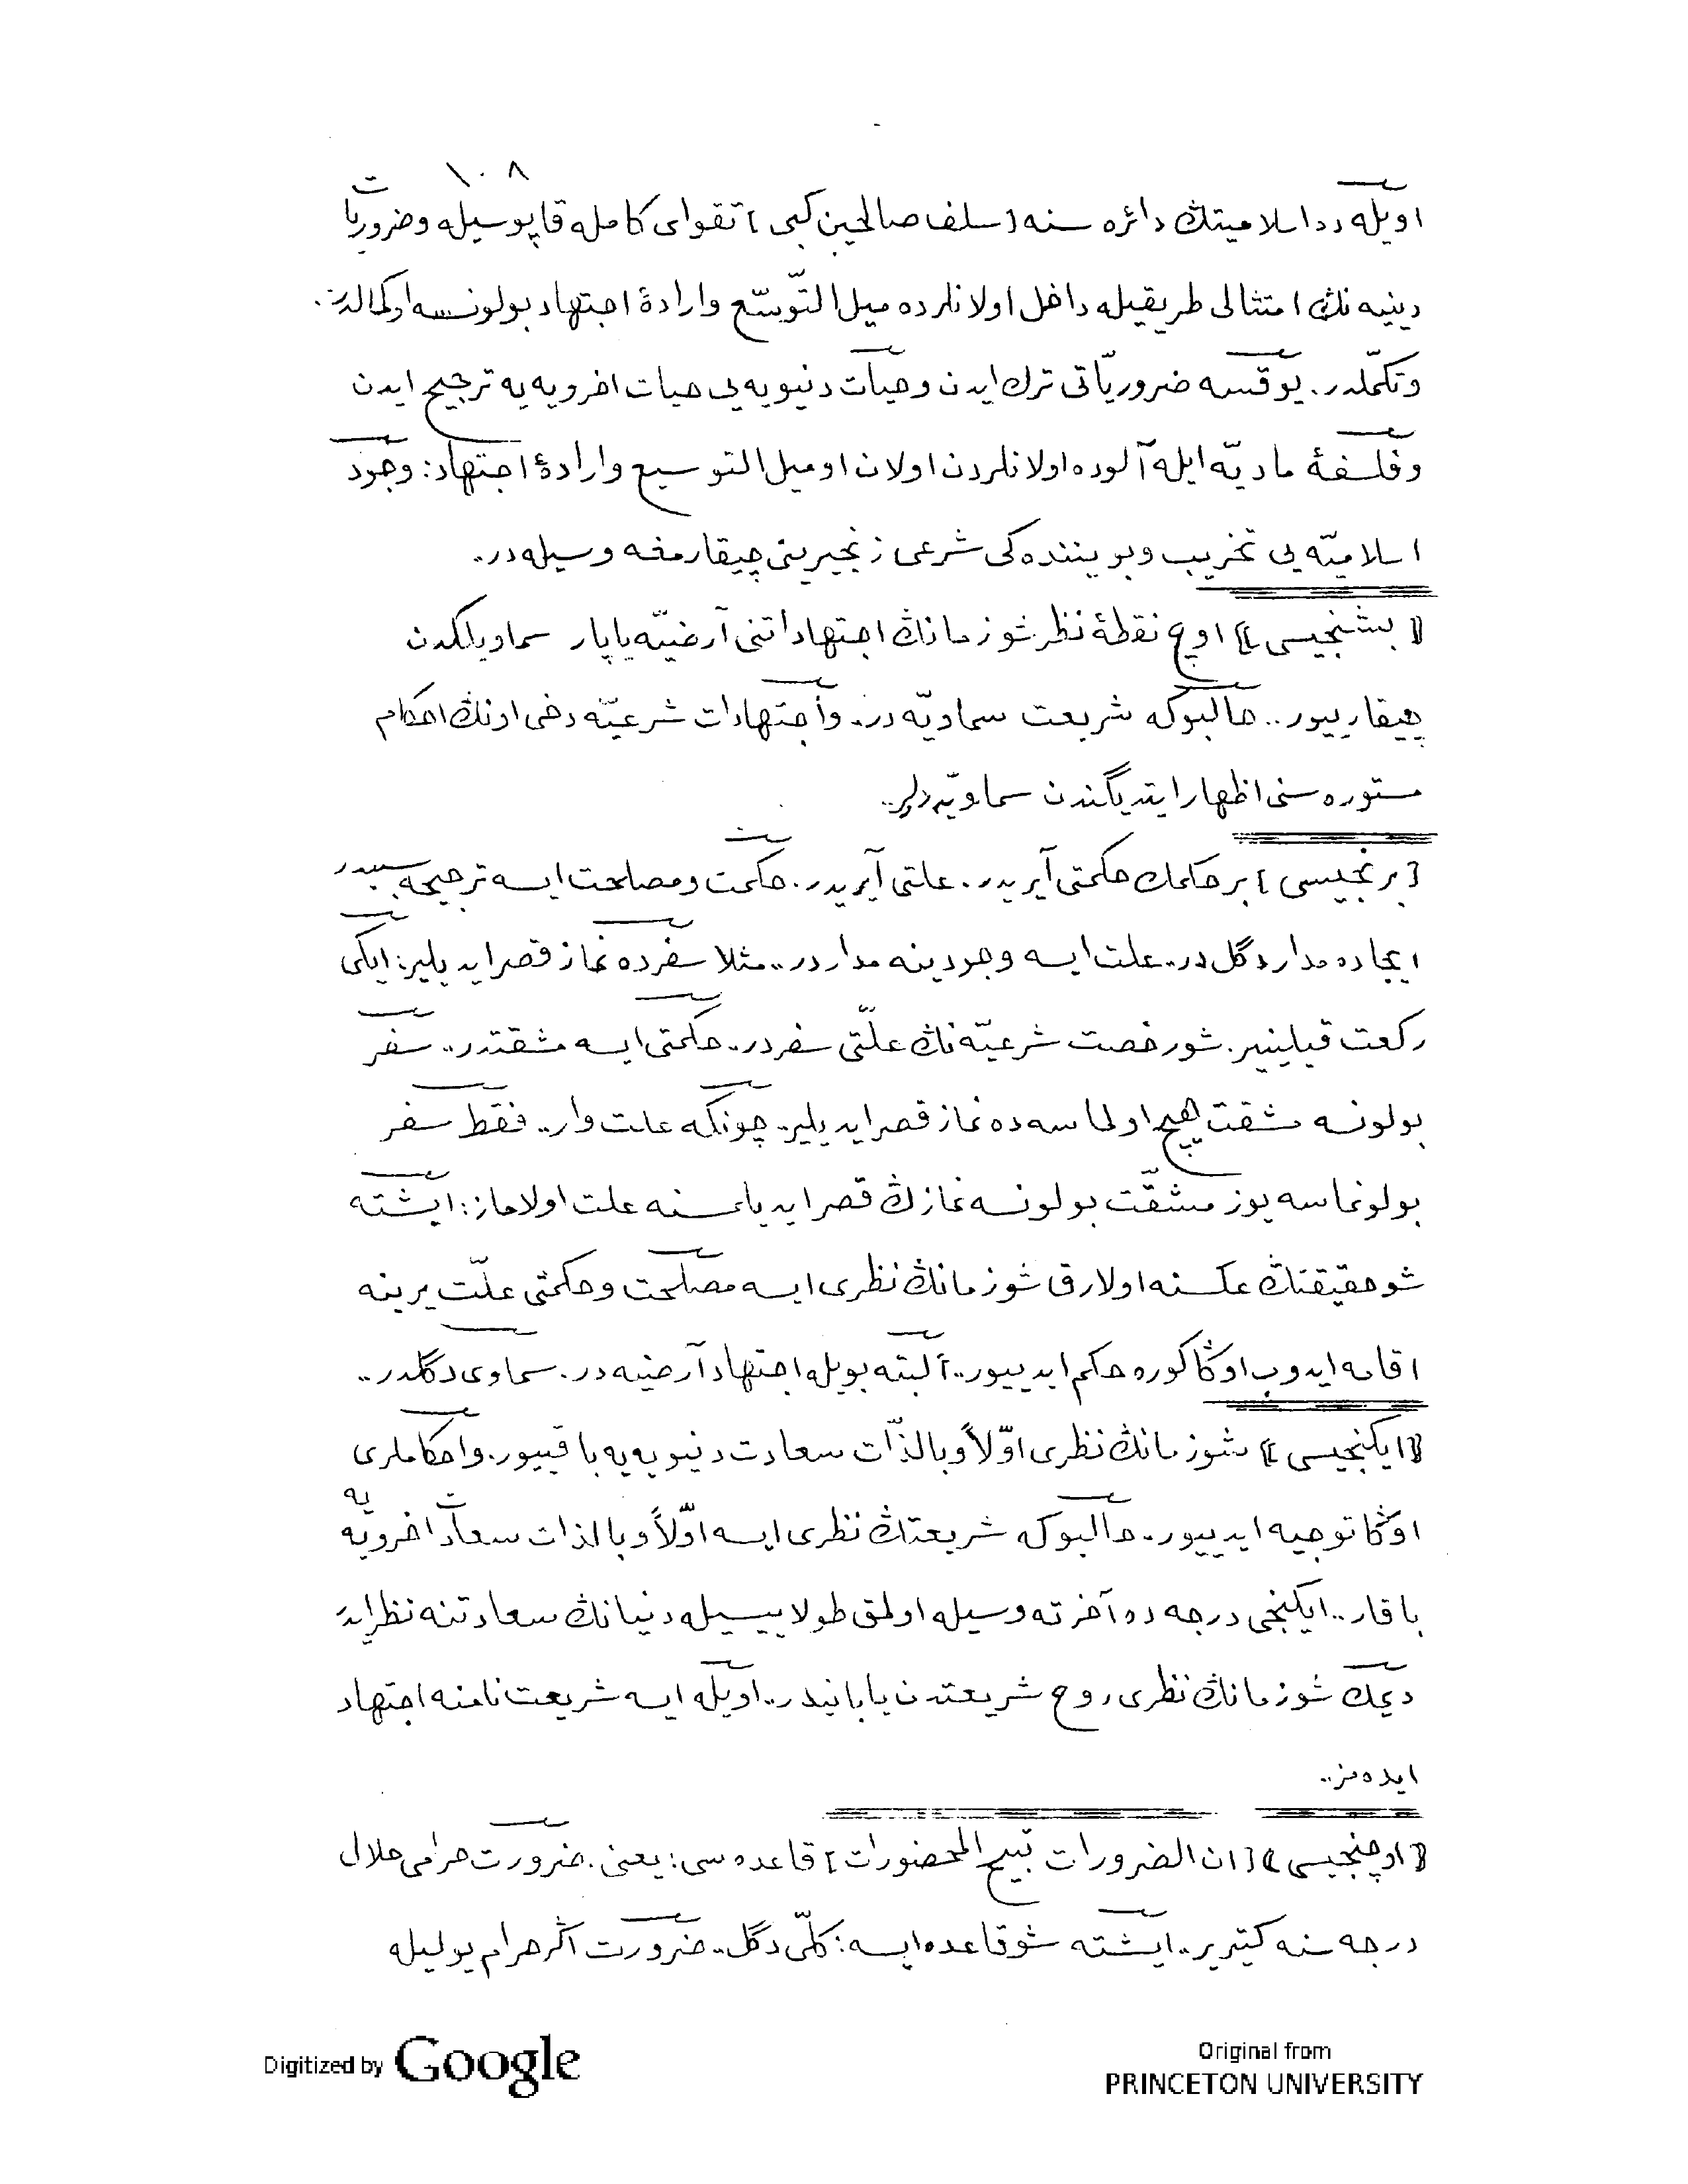 ١٠٨
اویله ده اسلامیتڭ دائره سنه [سلف صالحین کبی] تقوای کامله قاپوسیله وضروریات
دینیه نڭ امتثالی طریقیله داخل اولانلرده میل التّوسّع وارادۀ اجتهاد بولونسه او کمالدر.
وتکمّلدر. یوقسه ضروریّاتی ترك ایدن وحیات دنیویه یی حیات اخرویه یه ترجیح ایدن
وفلسفۀ مادیّه ایله آلوده اولانلردن اولان او میل التوسیع وارادۀ اجتهاد: وجود
اسلامیّه یی تخریب وبویننده کی شرعی زنجیرینی چیقارمغه وسیله در.
﴿بشنجیسی﴾ اوچ نقطۀ نظر شو زمانڭ اجتهاداتنی آرضیّه یاپار سماویلکدن
چیقارییور.. حالبوکه شریعت سماویّه در. وأجتهادات شرعیّه دخی اونڭ احکام
مستوره سنی اظهار ایتدیگندن سماویّه درلر..
[برنجیسی] بر حکمك حکمتی آیریدر. علتی آیریدر. حکمت ومصلحت ایسه ترجیحه سببدر
ایجاده مدار دگل در.. علت ایسه وجودینه مداردر.. مثلا سفرده نماز قصر ایدیلیر: ایکی
رکعت قیلینیر. شو رخصت شرعیّه نڭ علّتی سفردر.. حکمتی ایسه مشقتدر.. سفر
بولونسه مشقت هیچ اولماسه ده نماز قصر ایدیلیر. چونکه علت وار.. فقط سفر
بولونماسه یوز مشقّت بولونسه نمازڭ قصر ایدیلمسنه علت اولاماز: ایشته
شو حقیقتڭ عکسنه اولارق شو زمانڭ نظری ایسه مصلحت وحکمتی علّت یرینه
اقامه ایدوب اوڭا کوره حکم ایدییور.. ألبته بویله اجتهاد آرضیه در. سماوی دگلدر..
﴿ایکنجیسی﴾ شو زمانڭ نظری اوّلاً وبالذّات سعادت دنیویه یه باقییور. واحکاملری
اوڭا توجیه ایدییور.. حالبوکه شریعتڭ نظری ایسه اوّلاً وبالذات سعادت اخرویّه یه
باقار.. ایکنجی درجه ده آخرته وسیله اولمق طولاییسیله دنیانڭ سعادتنه نظر ایدر
دیمك شو زمانڭ نظری روح شریعتدن یابانیدر.. اویله ایسه شریعت نامنه اجتهاد
ایده مز..
﴿اوچنجیسی﴾ [ان الضرورات تبیح المحضورات] قاعده سی: یعنی. ضرورت حرامی حلال
درجه سنه کتیریر.. ایشته شو قاعده ایسه: کلّی دگل.. ضرورت اگر حرام یولیله
Digitized by Google
Original from
PRINCETON UNIVERSITY